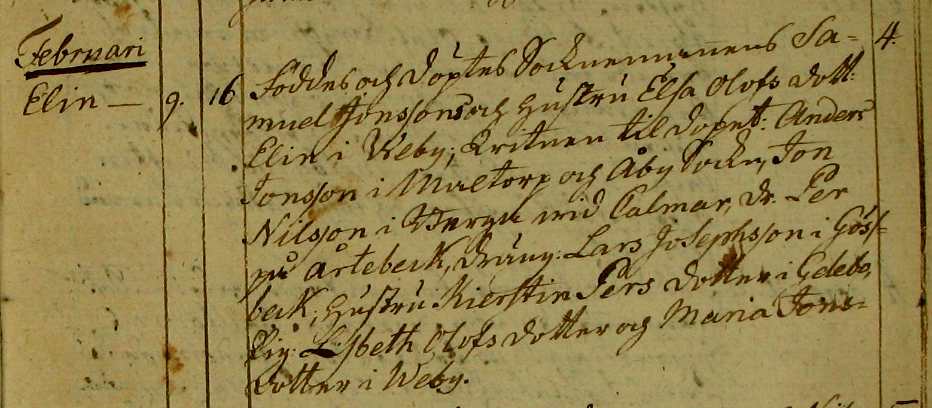 Februari
Elin — 9. 16 Föddes och döptes Socknemannens Sa= 4.
muel Jonssons och hustru Elsa Olofs dott:
Elin i Weby; Witnen til dopet: Anders
Jonsson i och Åby Sockn, Jon
Nilsson i Berga wid Calmar, dr. Per
på Artebeck, dräng: Lars Josephsson i Gös/=
beck, hustru Kierstin Pers dotter i Gelebo,
Pig: Lisbeth Olofs dotter og Maria Jons=
dotter i Weby.